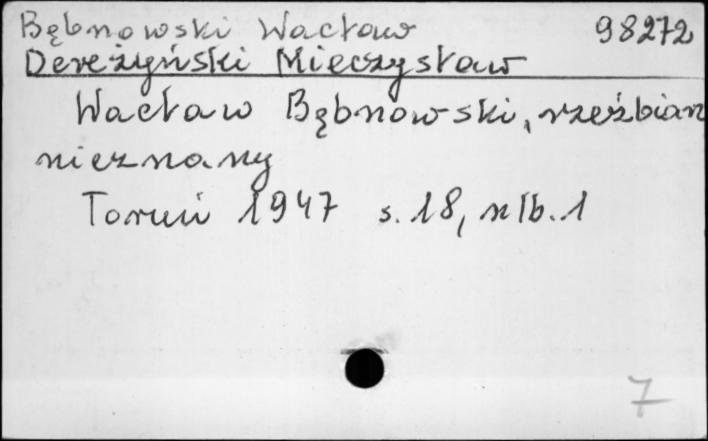 Bębnowski Wacław 98272
Dereżyński Mieczysław
Wacław Bębnowski, rzeźbiarz
nieznany
Toruń 1947 s. 18, nlb. 1
7